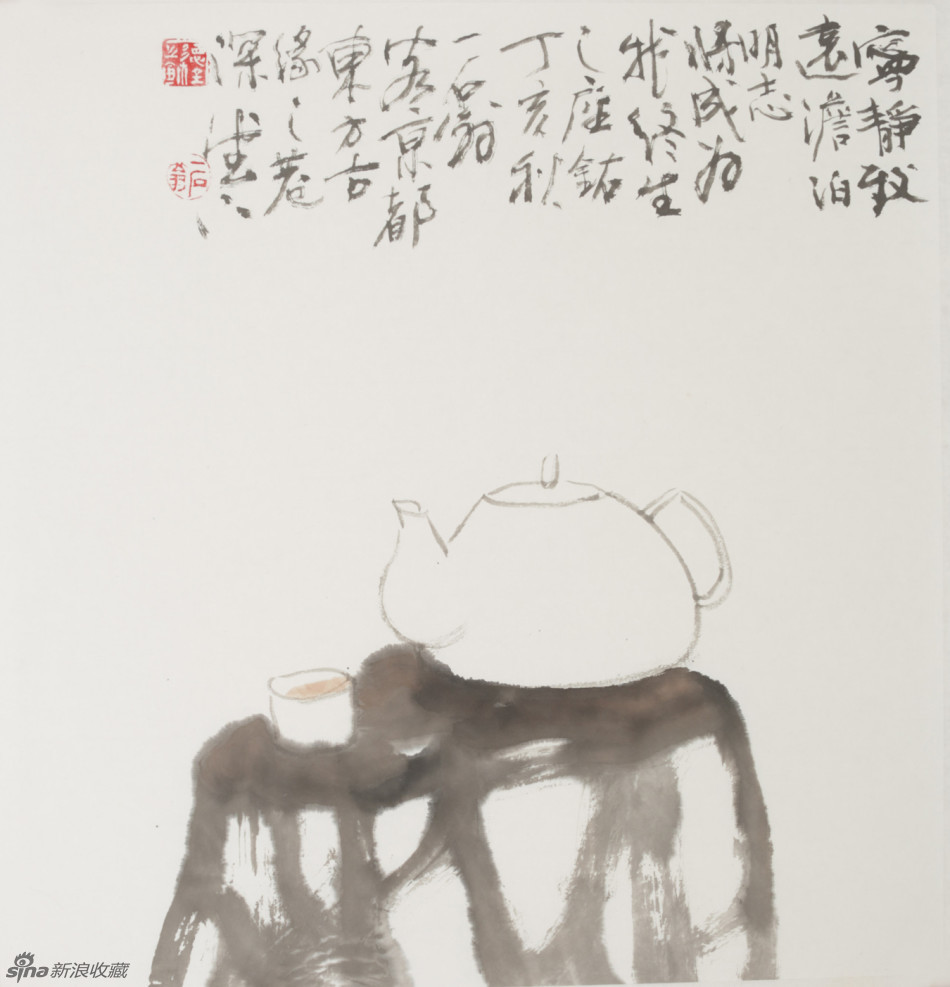 寧靜致
遠澹泊
明志
將成为
我终生
之座銘
丁亥秋
一石翁
客京都
東方古
緣之巷
深
一石翁
sina新浪收藏